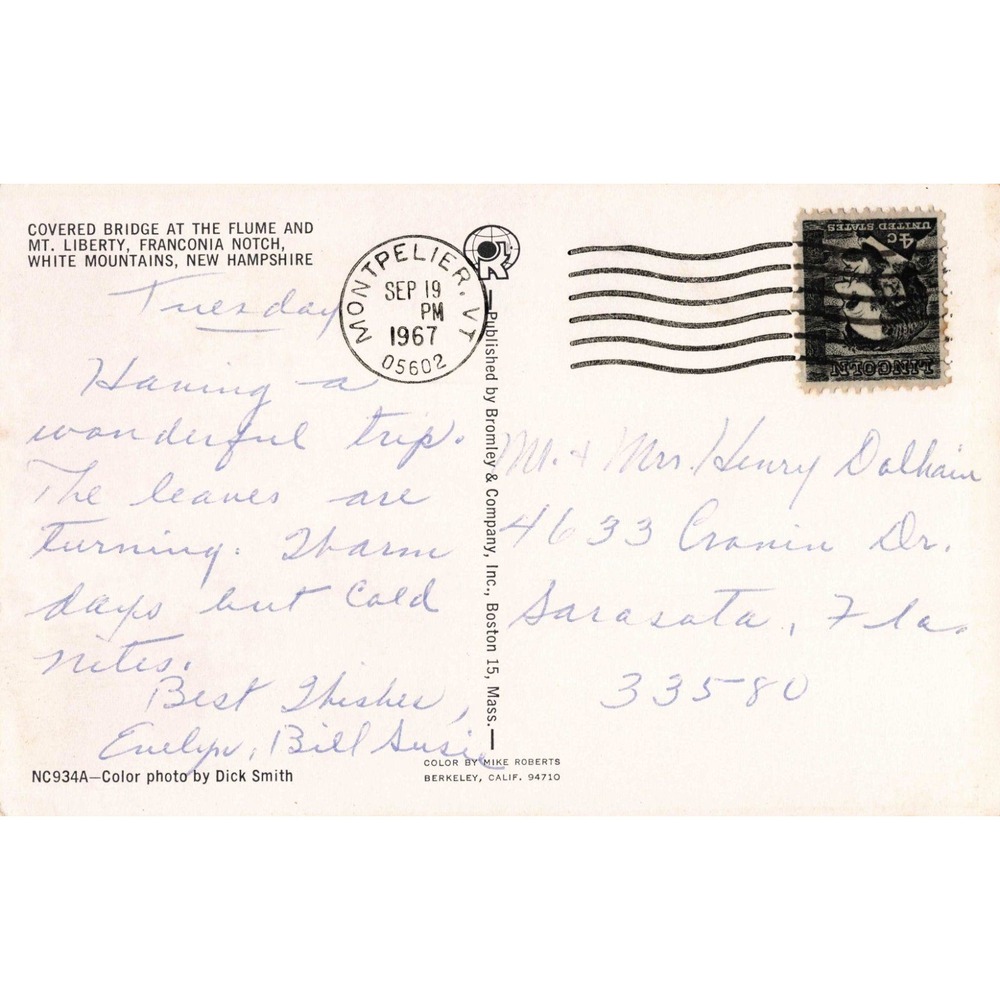 COVERED BRIDGE AT THE FLUME AND
MT. LIBERTY, FRANCONIA NOTCH,
WHITE MOUNTAINS, NEW HAMPSHIRE
Tuesday
Having a
wonderful trip.
The leaves are
turning. Warm
days but cold
nites.
Best Wishes,
Evelyn, Bill Susie
NC934A—Color photo by Dick Smith
MONTPELIER, VT
SEP 19
PM
1967
05602
Published by Bromley & Company, Inc., Boston 15, Mass.
COLOR BY MIKE ROBERTS
BERKELEY, CALIF. 94710
LINCOLN
UNITED STATES
4c
Mr. + Mrs. Henry
4633 Cronin Dr.
Sarasota, Fla.
33580